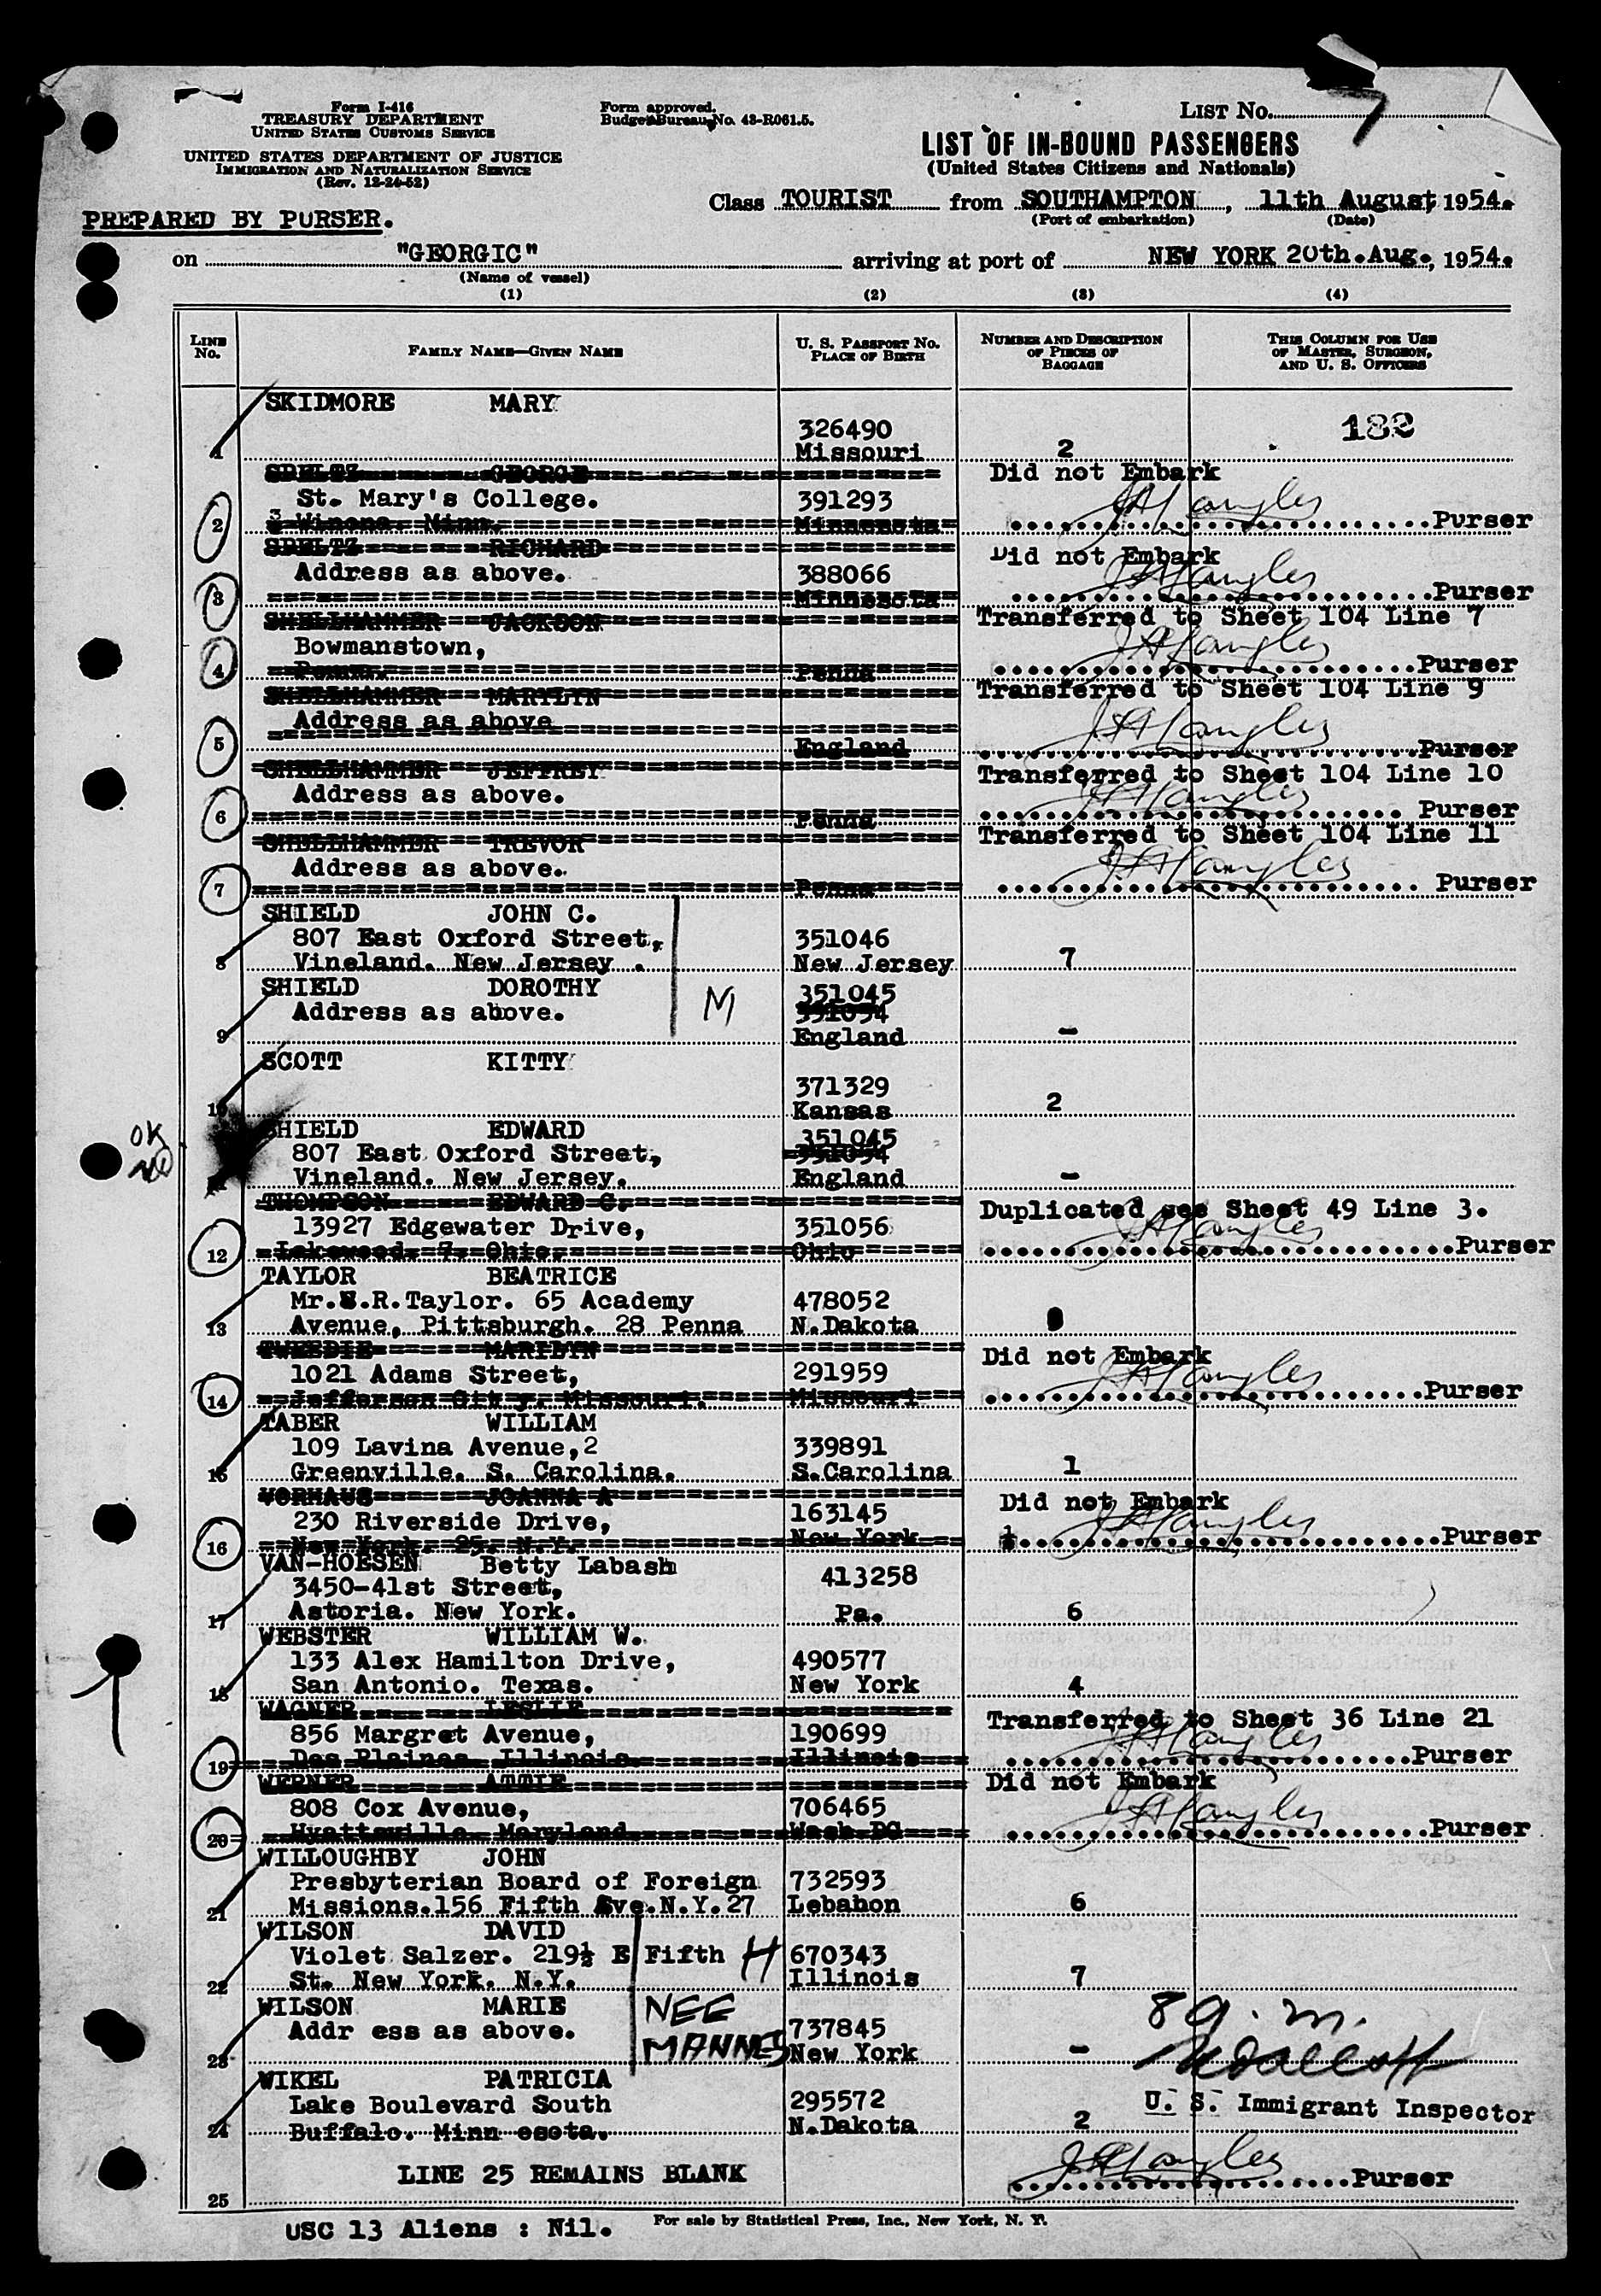 Form I-416
TREASURY DEPARTMENT
UNITED STATES CUSTOMS SERVICE
UNITED STATES DEPARTMENT OF JUSTICE
IMMIGRATION AND NATURALIZATION SERVICE
(Rev. 12-24-52)
PREPARED BY PURSER.
Form approved.
Budget Bureau No. 43-R061.5.
LIST NO. 7
LIST OF IN-BOUND PASSENGERS
(United States Citizens and Nationals)
Class TOURIST from SOUTHAMPTON, 11th August, 1954.
(Port of embarkation) (Date)
on "GEORGIC" arriving at port of NEW YORK 20th. Aug., 1954.
(Name of vessel)
(1) (2) (3) (4)
LINE No. FAMILY NAME—GIVEN NAME U. S. PASSPORT NO. PLACE OF BIRTH NUMBER AND DESCRIPTION OF PIECES OF BAGGAGE THIS COLUMN FOR USE OF MASTER, SURGEON, AND U. S. OFFICERS
SKIDMORE MARY
326490 182
1 Missouri 2
SPELTZ GEORGE Did not Embark
St. Mary's College. 391293
2 Winona. Minn. Minnesota Purser
SPELTZ RICHARD Did not Embark
Address as above. 388066
3 Minnesota Purser
SHELLHAMMER JACKSON Transferred to Sheet 104 Line 7
Bowmanstown,
4 Penna. Penna Purser
SHELLHAMMER MARYLYN Transferred to Sheet 104 Line 9
Address as above
5 England Purser
SHELLHAMMER JEFFREY Transferred to Sheet 104 Line 10
Address as above.
6 Penna Purser
SHELLHAMMER TREVOR Transferred to Sheet 104 Line 11
Address as above.
7 Penna Purser
SHIELD JOHN C.
807 East Oxford Street, 351046
8 Vineland. New Jersey . New Jersey 7
SHIELD DOROTHY M 351045
Address as above. 351054
9 England -
SCOTT KITTY
371329
10 Kansas 2
OK
SHIELD EDWARD 351045
807 East Oxford Street, 351054
11 Vineland. New Jersey. England -
THOMPSON EDWARD C. Duplicated see Sheet 49 Line 3.
13927 Edgewater Drive, 351056
12 Lakewood. 7. Ohio. Ohio Purser
TAYLOR BEATRICE
Mr.S.R.Taylor. 65 Academy 478052
13 Avenue, Pittsburgh. 28 Penna N.Dakota
TWEEDIE MARILYN Did not Embark
1021 Adams Street, 291959
14 Jefferson City. Missouri. Missouri Purser
TABER WILLIAM
109 Lavina Avenue,2 339891
15 Greenville. S. Carolina. S.Carolina 1
VORHAUS JOANNA A Did not Embark
230 Riverside Drive, 163145
16 New York. 25. N.Y. New York Purser
VAN-HOESEN Betty Labash
3450-41st Street, 413258
17 Astoria. New York. Pa. 6
WEBSTER WILLIAM W.
133 Alex Hamilton Drive, 490577
18 San Antonio. Texas. New York 4
WAGNER LESLIE Transferred to Sheet 36 Line 21
856 Margret Avenue, 190699
19 Des Plaines. Illinois. Illinois Purser
WERNER ATTIE Did not Embark
808 Cox Avenue, 706465
20 Hyattsville. Maryland. Wash DC Purser
WILLOUGHBY JOHN
Presbyterian Board of Foreign 732593
21 Missions.156 Fifth Ave.N.Y.27 Lebahon 6
WILSON DAVID
Violet Salzer. 219½ E Fifth H 670343
22 St. New York. N.Y. Illinois 7
WILSON MARIE NEE 89. m.
Addr ess as above. MANNES 737845
23 New York -
WIKEL PATRICIA
Lake Boulevard South 295572 U. S. Immigrant Inspector
24 Buffalo. Minn esota. N.Dakota 2
LINE 25 REMAINS BLANK Purser
25
USC 13 Aliens : Nil. For sale by Statistical Press, Inc., New York, N. Y.